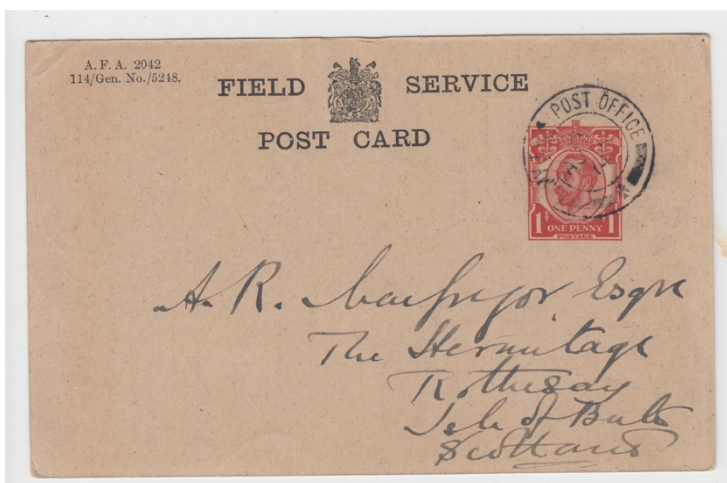 A. F. A. 2042
114/Gen. No./5248.
FIELD SERVICE
POST CARD
POST OFFICE
1 ONE PENNY 1
POSTAGE
A. R. MacGregor Esqre
The Hermitage
Rothesay
Isle of Bute
Scotland